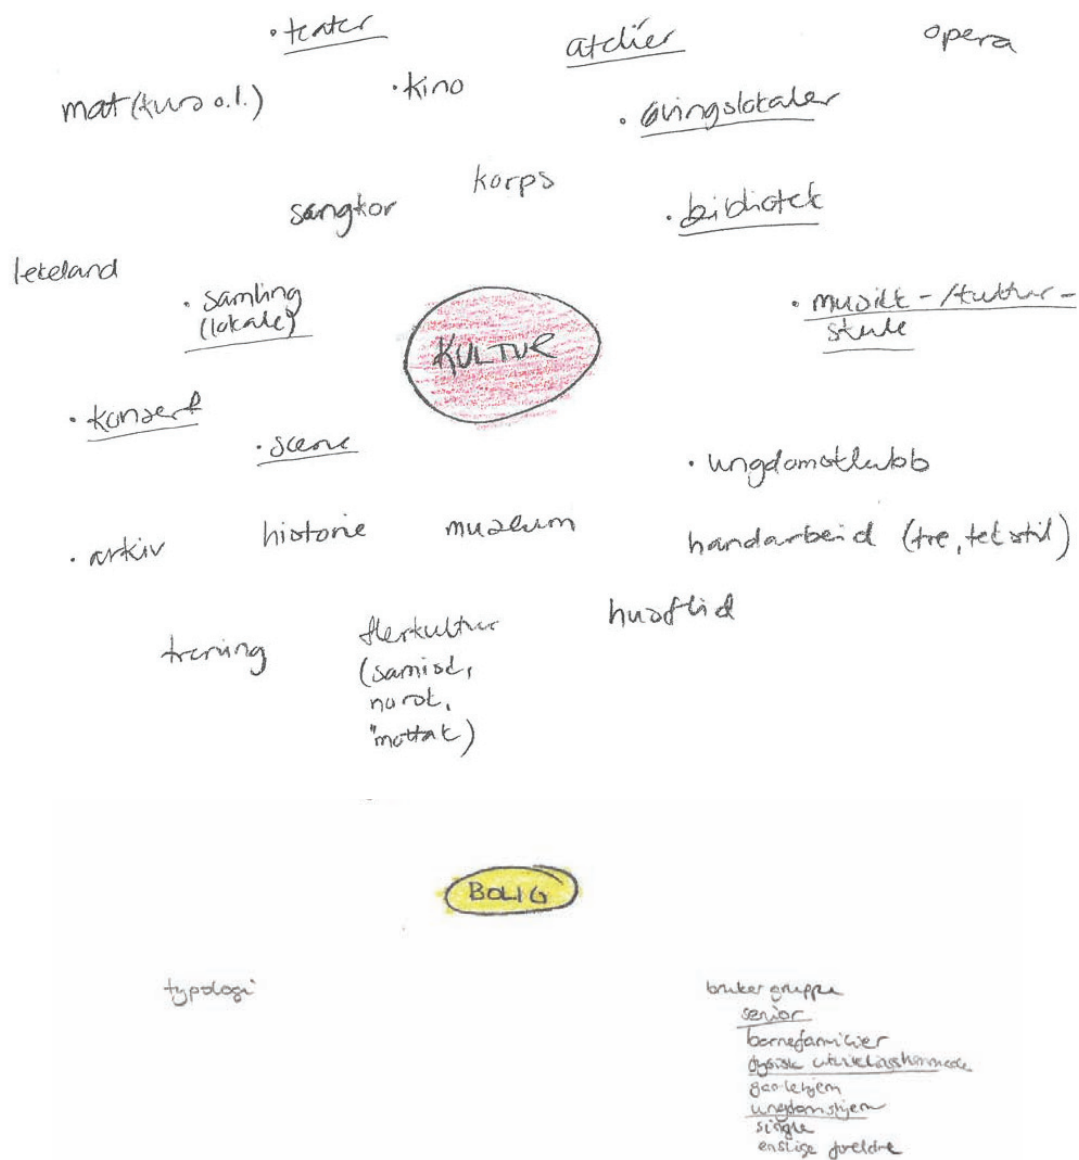 • teater
atelier
opera
mat (kurs o.l.)
• kino
• øvingslokaler
korps
sangkor
• bibliotek
lekeland
• samling
(lokale)
• musikk-/kultur-
skule
KULTUR
• konsert
• scene
• ungdomsklubb
• arkiv
historie
museum
handarbeid (tre, tekstil)
husflid
trening
flerkultur
(samisk,
norsk,
"mottak)
BOLIG
typologi
brukergruppe
senior
barnefamilier
fysisk utviklingshemmede
gamlehjem
ungdomshjem
single
enslige foreldre